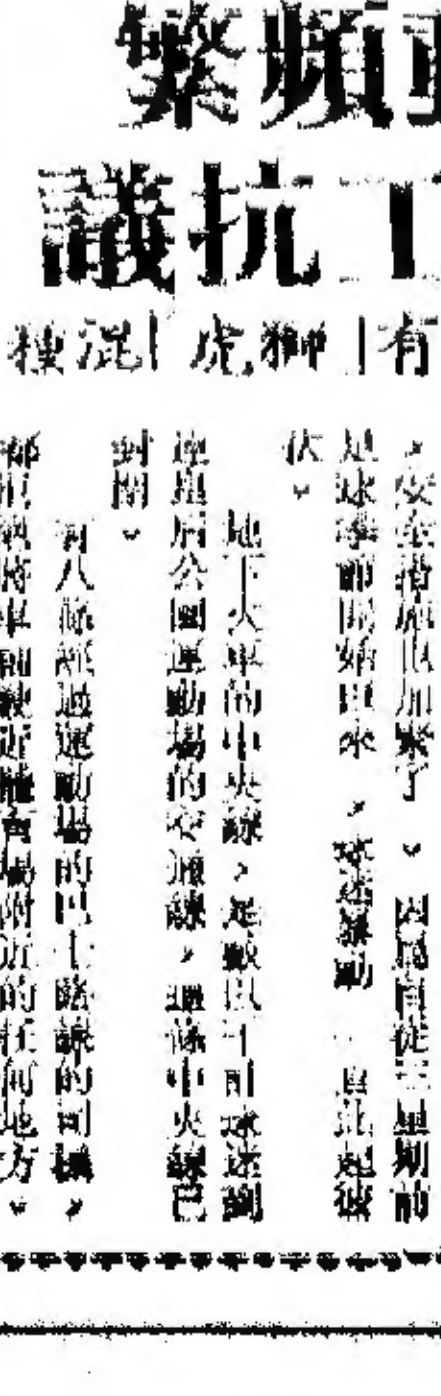 頻繁
工抗議
有「獅虎」混種
，安全措施也加緊了。因爲自從三星期前
足球季節開始以來，球迷暴動一直此起彼
伏。
地下火車的中央線，是數以千計球迷到
達皇后公園運動場的交通線，這條中央線已
封閉。
有八條經過運動場的巴士路線的司機，
都拒絕將車輛駛近體育場附近的任何地方。